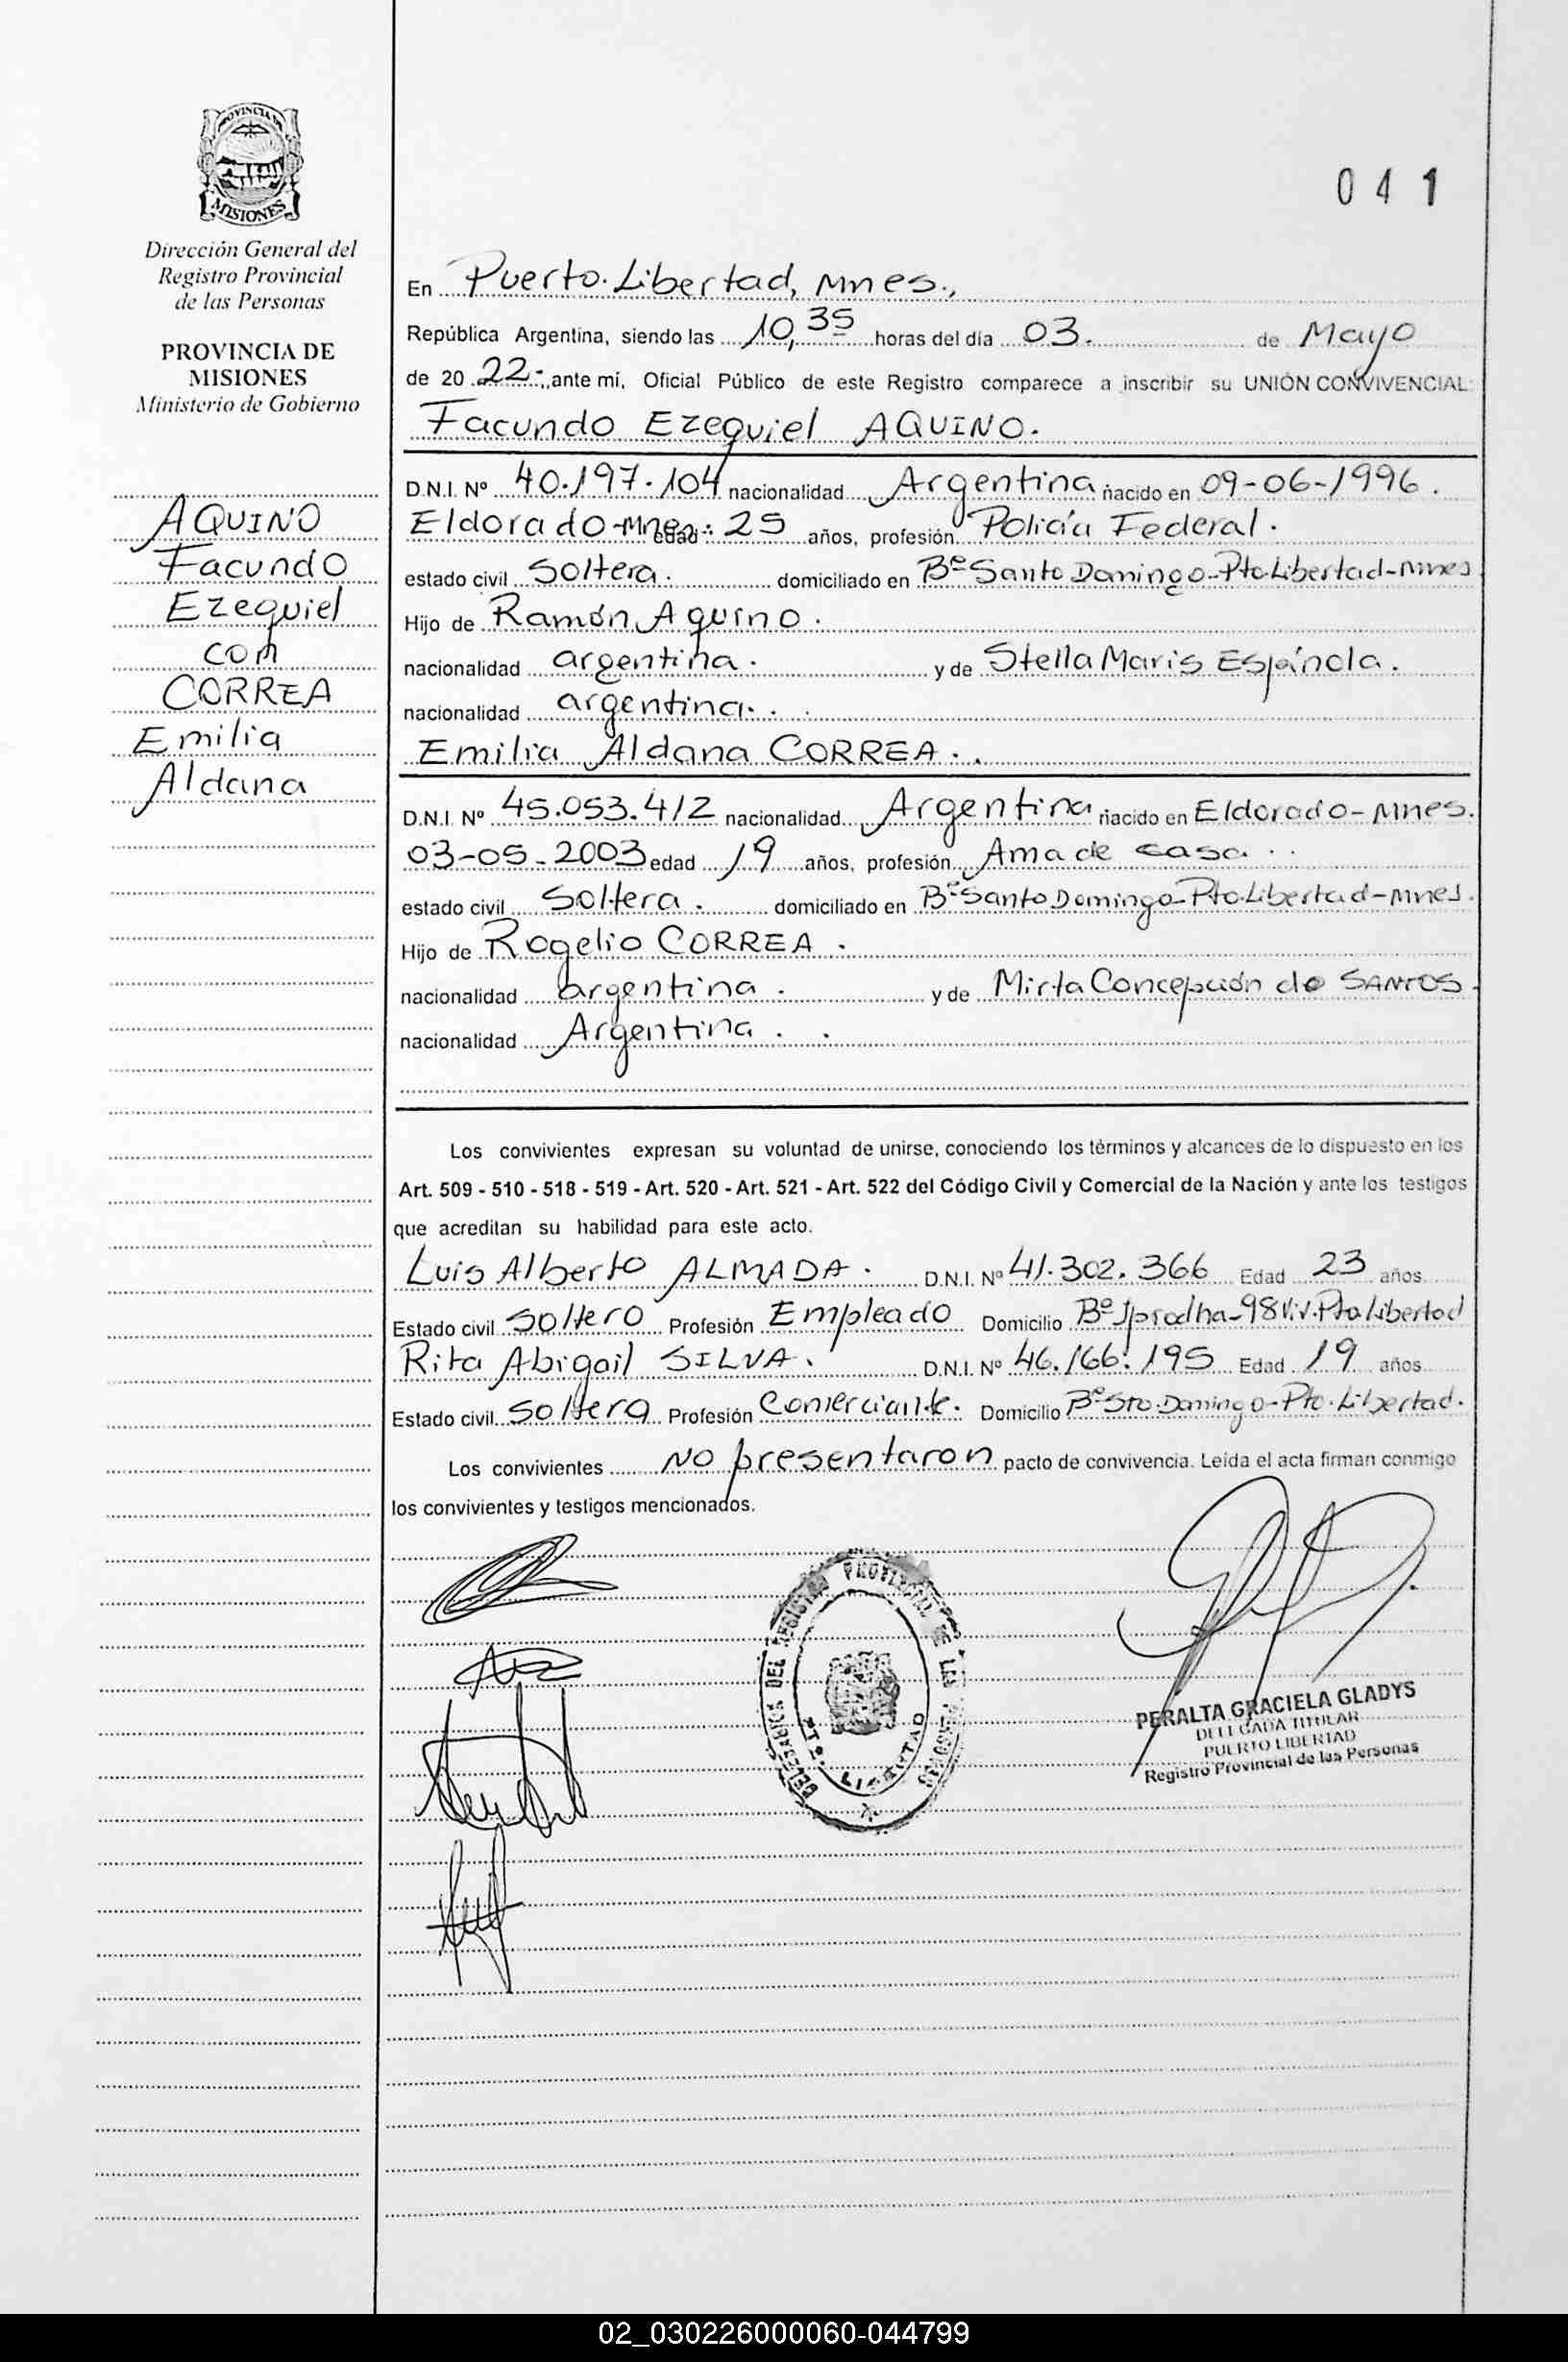 PROVINCIA DE
MISIONES
Dirección General del
Registro Provincial
de las Personas
PROVINCIA DE
MISIONES
Ministerio de Gobierno
AQUINO
Facundo
Ezequiel
con
CORREA
Emilia
Aldana
041
En Puerto Libertad, Mnes.,
República Argentina, siendo las 10,35 horas del día 03. de Mayo
de 2022-, ante mí, Oficial Público de este Registro comparece a inscribir su UNIÓN CONVIVENCIAL:
Facundo Ezequiel AQUINO.
D.N.I. Nº 40.197.104 nacionalidad Argentina nacido en 09-06-1996.
Eldorado-Mnes. edad: 25 años, profesión Policía Federal.
estado civil Soltera. domiciliado en Bº Santo Domingo-Pto Libertad-Mnes
Hijo de Ramón Aquino.
nacionalidad argentina. y de Stella Maris Espínola.
nacionalidad argentina.
Emilia Aldana CORREA.
D.N.I. Nº 45.053.412 nacionalidad Argentina nacido en Eldorado-Mnes.
03-05-2003 edad 19 años, profesión Ama de casa.
estado civil Soltera. domiciliado en Bº Santo Domingo-Pto Libertad-Mnes.
Hijo de Rogelio CORREA.
nacionalidad argentina. y de Mirta Concepción de SANTOS.
nacionalidad Argentina.
Los convivientes expresan su voluntad de unirse, conociendo los términos y alcances de lo dispuesto en los
Art. 509 - 510 - 518 - 519 - Art. 520 - Art. 521 - Art. 522 del Código Civil y Comercial de la Nación y ante los testigos
que acreditan su habilidad para este acto.
Luis Alberto ALMADA. D.N.I. Nº 41.302.366 Edad 23 años
Estado civil Soltero Profesión Empleado Domicilio Bº Iprodha-98 Viv. Pto Libertad
Rita Abigail SILVA. D.N.I. Nº 46.166.195 Edad 19 años
Estado civil Soltera Profesión Comerciante. Domicilio Bº Sto. Domingo-Pto. Libertad.
Los convivientes NO presentaron pacto de convivencia. Leída el acta firman conmigo
los convivientes y testigos mencionados.
DELEGACION DEL REGISTRO PROVINCIAL DE LAS PERSONAS
PTO. LIBERTAD
PERALTA GRACIELA GLADYS
DELEGADA TITULAR
PUERTO LIBERTAD
Registro Provincial de las Personas
02_030226000060-044799